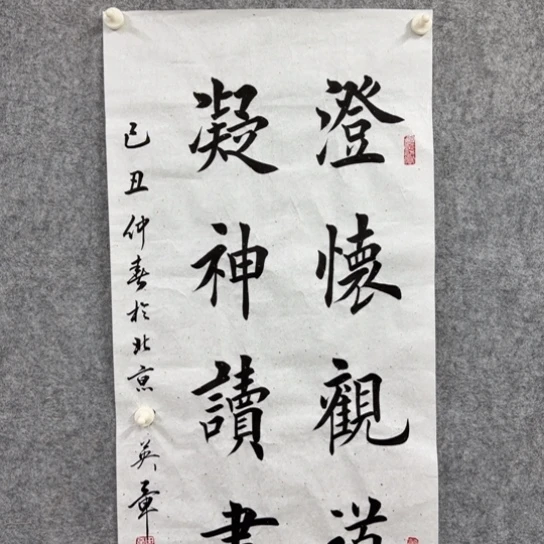 澄懷觀道
凝神讀書
己丑仲春於北京 英章